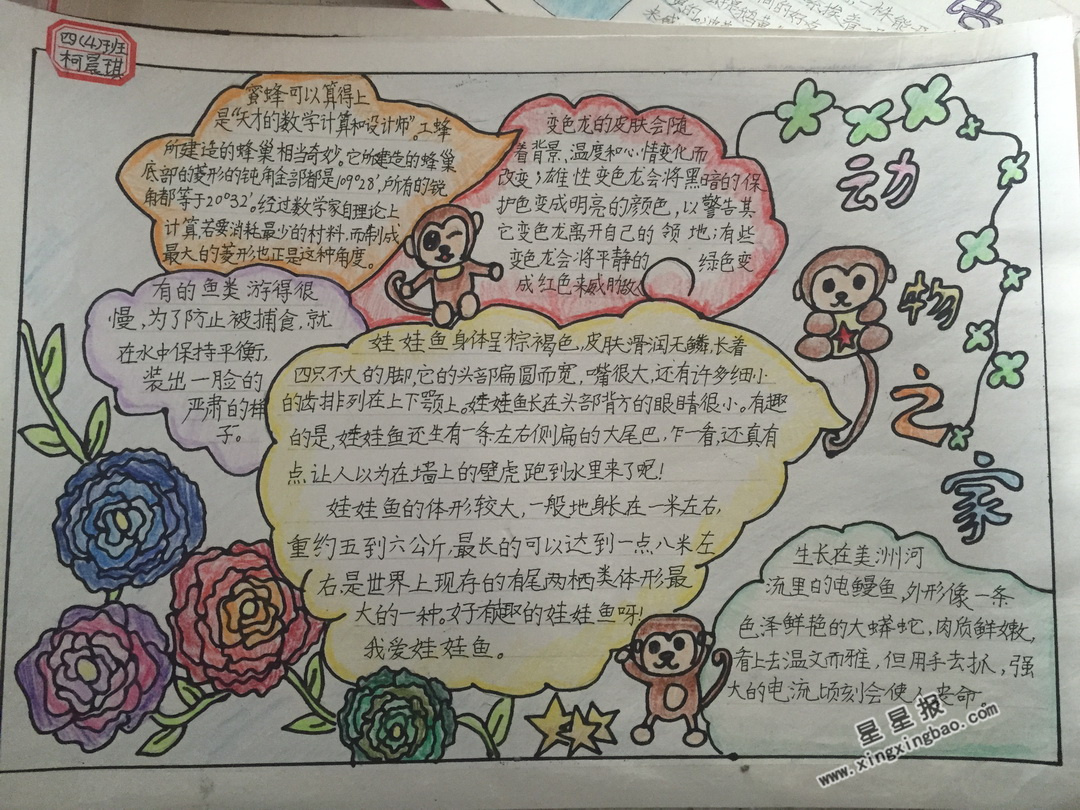 四(4)班
柯晨琪
动
物
之
家
蜜蜂可以算得上
是“天才的数学计算和设计师”。工蜂
所建造的蜂巢相当奇妙。它所建造的蜂巢
底部的菱形的钝角全部都是109°28′,所有的锐
角都等于20°32′。经过数学家自理论上
计算,若要消耗最少的村料,而制成
最大的菱形也正是这种角度。
变色龙的皮肤会随
着背景、温度和心情变化而
改变,雄性变色龙会将黑暗的保
护色变成明亮的颜色,以警告其
它变色龙离开自己的领地;有些
变色龙会将平静的绿色变
成红色来威胁敌
有的鱼类游得很
慢,为了防止被捕食,就
在水中保持平衡,
装出一脸的
严肃的样
子。
娃娃鱼身体呈棕褐色,皮肤滑润无鳞,长着
四只不大的脚,它的头部扁圆而宽,嘴很大,还有许多细小
的齿排列在上下颚上。娃娃鱼长在头部背方的眼睛很小。有趣
的是,娃娃鱼还生有一条左右侧扁的大尾巴,乍一看,还真有
点让人以为在墙上的壁虎跑到水里来了呢!
娃娃鱼的体形较大,一般地身长在一米左右,
重约五到六公斤,最长的可以达到一点八米左
右,是世界上现存的有尾两栖类体形最
大的一种。好有趣的娃娃鱼呀!
我爱娃娃鱼。
生长在美洲河
流里的电鳗鱼,外形像一条
色泽鲜艳的大蟒蛇,肉质鲜嫩,
看上去温文而雅,但用手去抓,强
大的电流,顷刻会使人丧命
星星报
www.xingxingbao.com